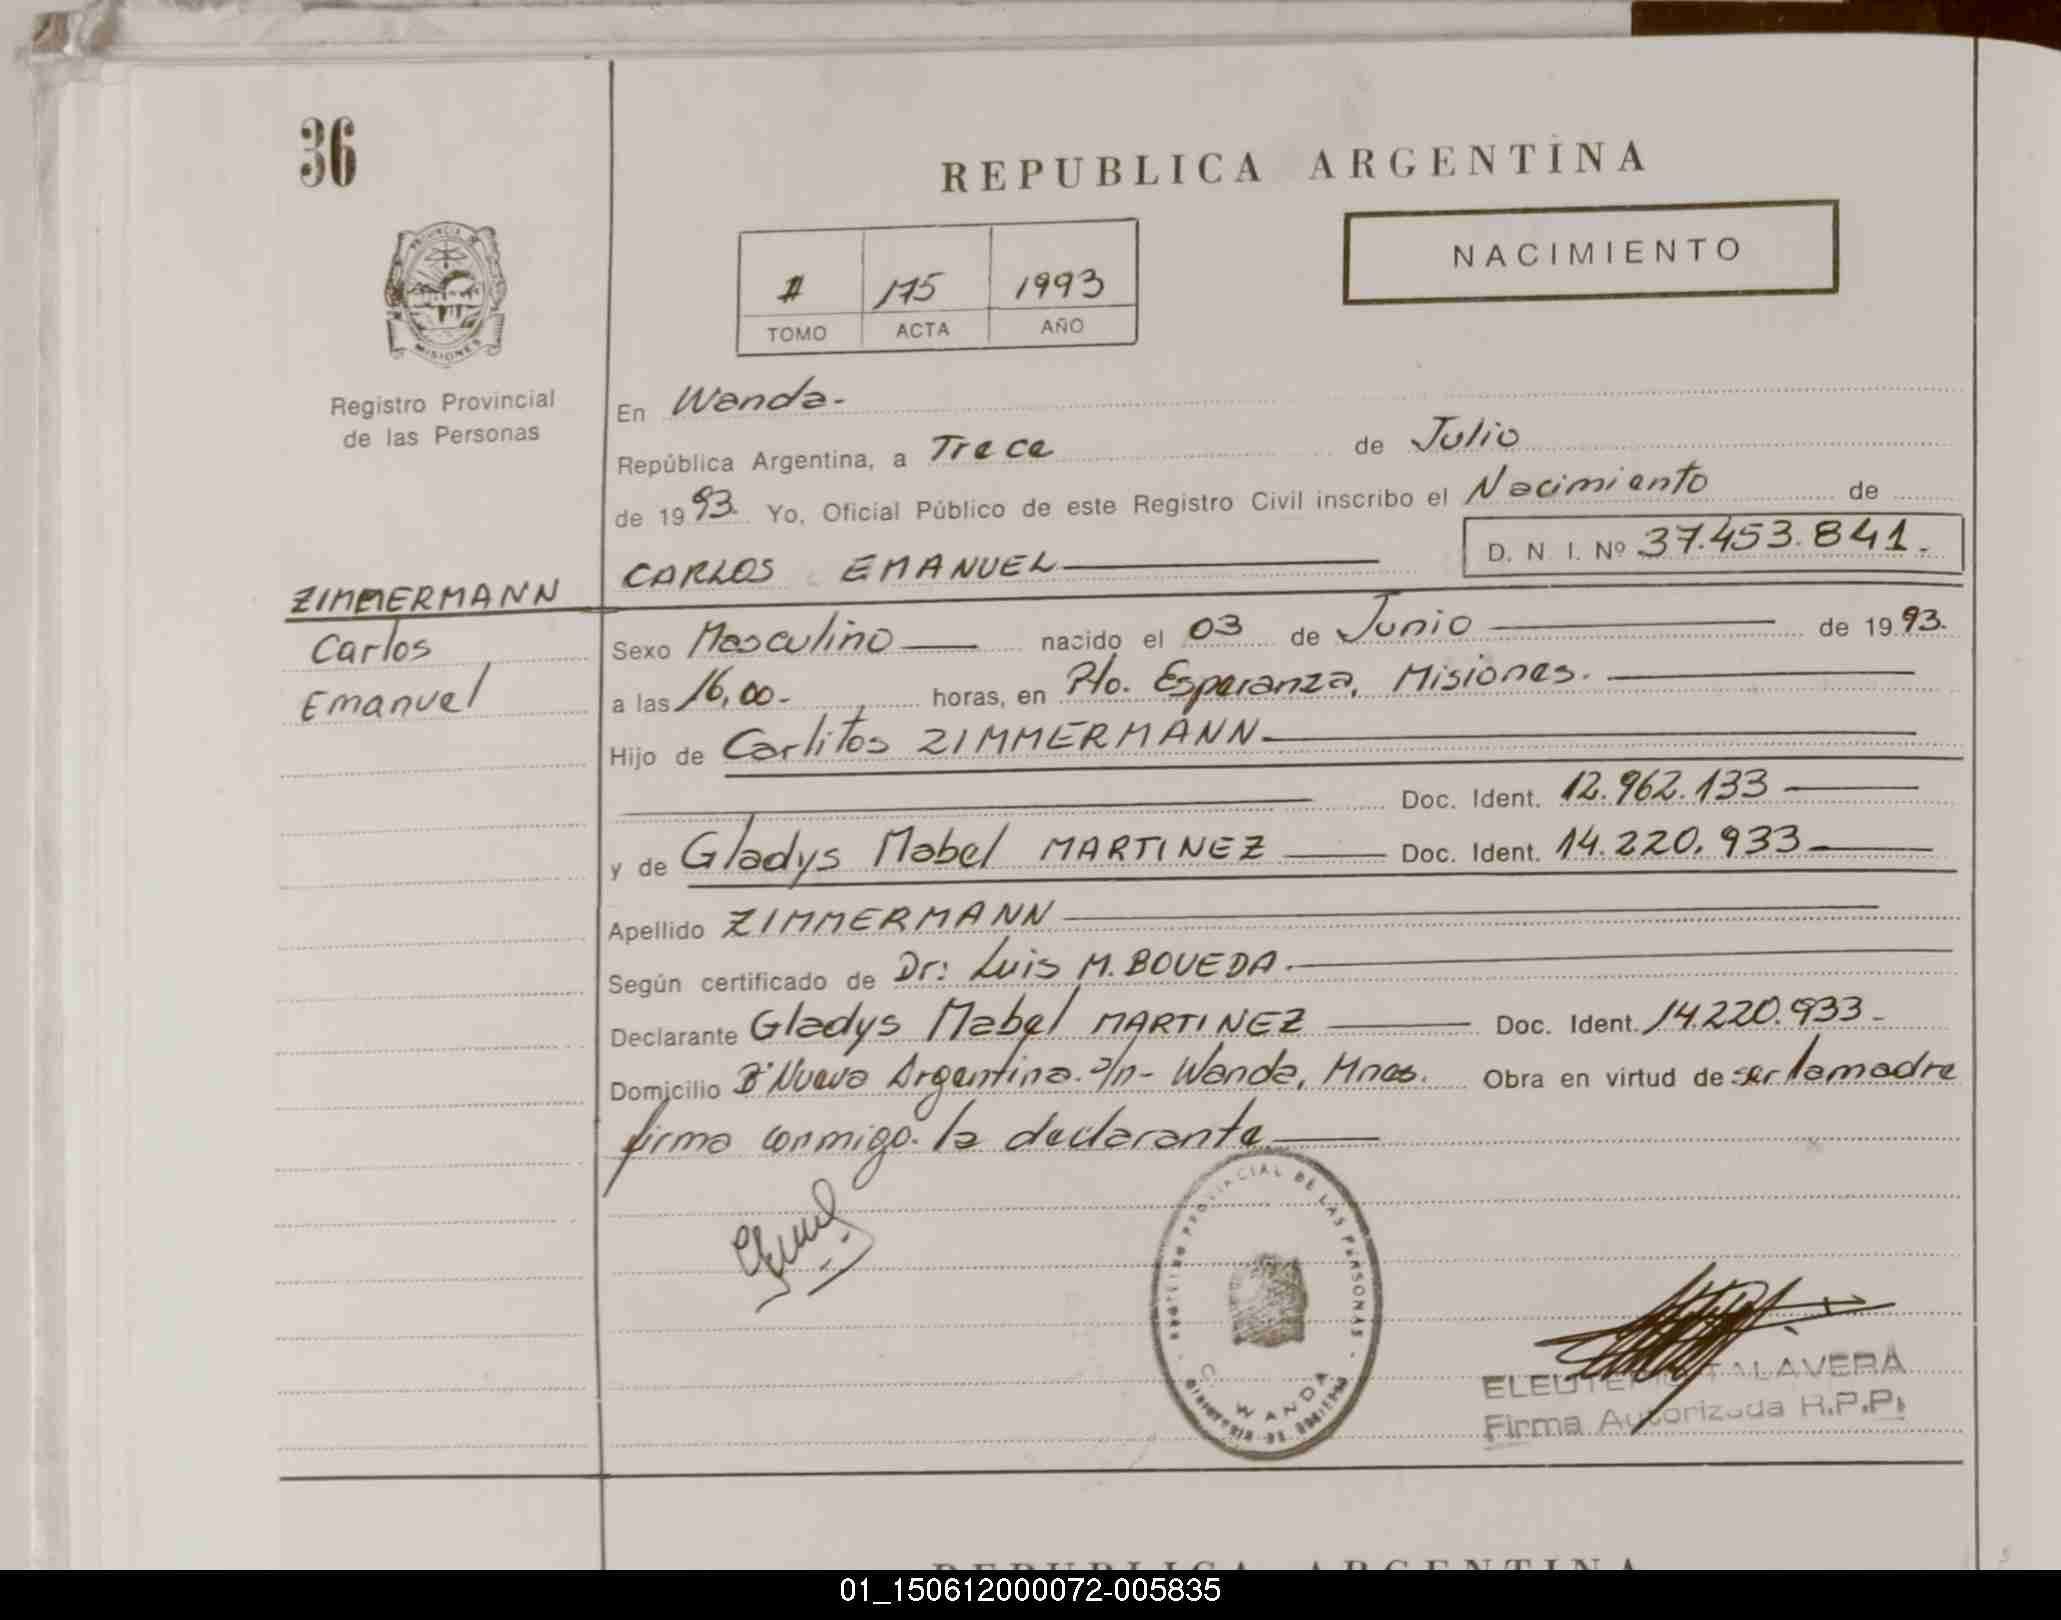 36
REPUBLICA ARGENTINA
NACIMIENTO
PROVINCIA DE
MISIONES
175 1993
TOMO ACTA AÑO
Registro Provincial
de las Personas
En Wanda.-
República Argentina, a Trece de Julio
de 1993. Yo, Oficial Público de este Registro Civil inscribo el Nacimiento de
CARLOS EMANUEL D. N. I. Nº 37.453.841.-
ZIMMERMANN
Carlos
Emanuel
Sexo Masculino nacido el 03 de Junio de 1993.
a las 16,00.- horas, en Pto. Esperanza, Misiones.
Hijo de Carlitos ZIMMERMANN
Doc. Ident. 12.962.133
y de Gladys Mabel MARTINEZ Doc. Ident. 14.220.933
Apellido ZIMMERMANN
Según certificado de Dr: Luis M. BOVEDA.
Declarante Gladys Mabel MARTINEZ Doc. Ident. 14.220.933.-
Domicilio Bº Nueva Argentina. s/n- Wanda, Mnes. Obra en virtud de ser la madre
firma conmigo la declarante
PROVINCIAL DE LAS PERSONAS
WANDA
ELEUTERIO TALAVERA
Firma Autorizada R.P.P.
REPUBLICA ARGENTINA
01_150612000072-005835